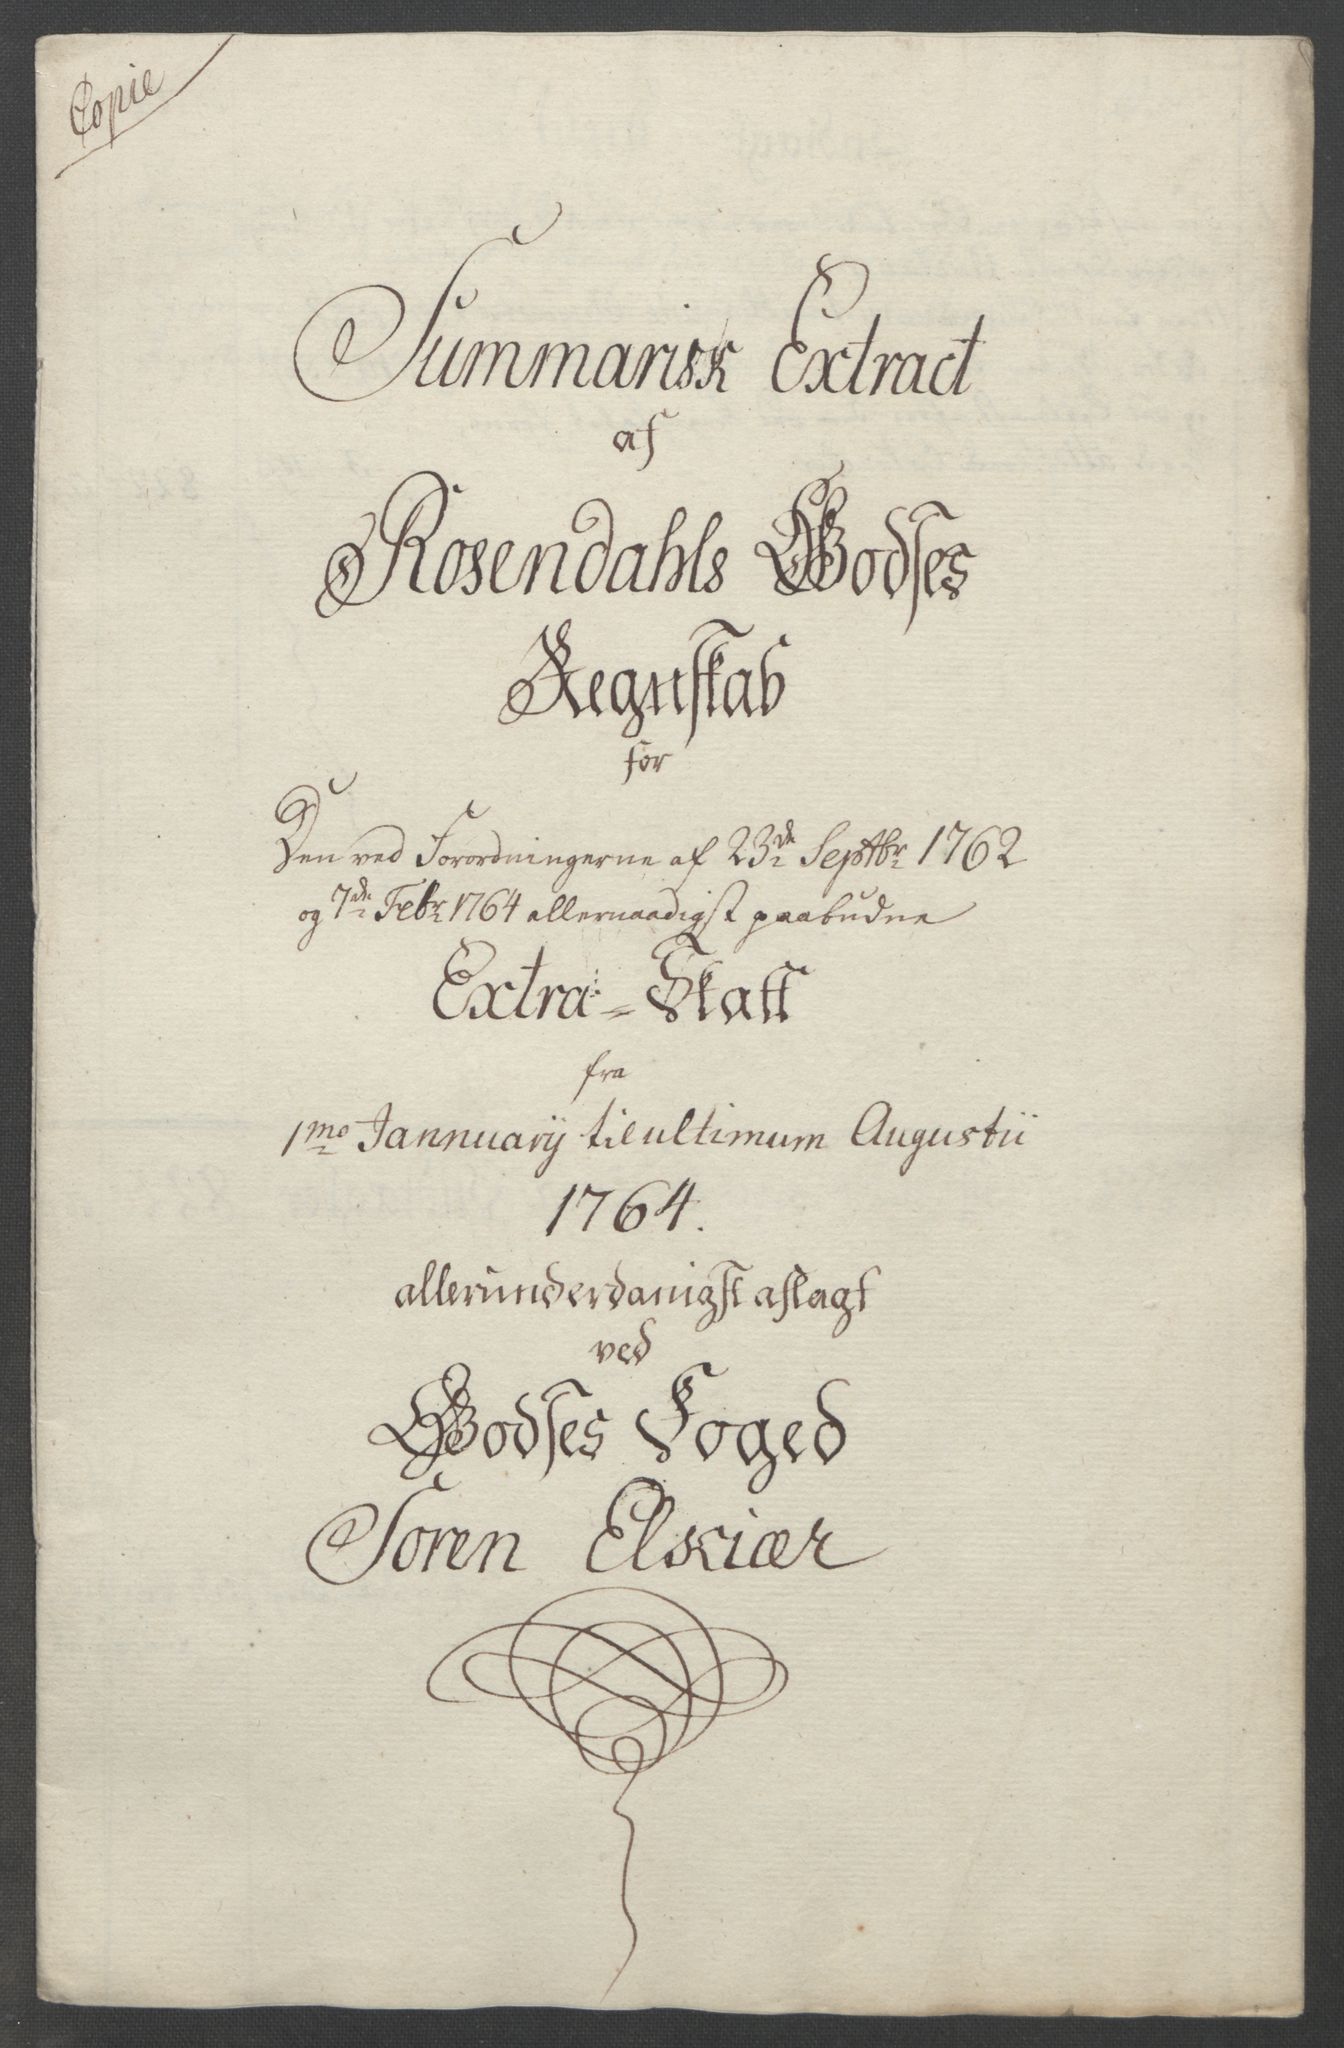 Copie
Summarisk Extract
af
Rosendahls Godses
Regnskab
for
Den ved Forordningerne af 23de Septbr 1762
og 7de Febr 1764 allernaadigst paabudne
Extra-Skatt
fra
1mo Jannuarij til ultimum Augustii
1764.
allerunderdanigst aflagt
ved
Godses Foged
Soren Elskiær